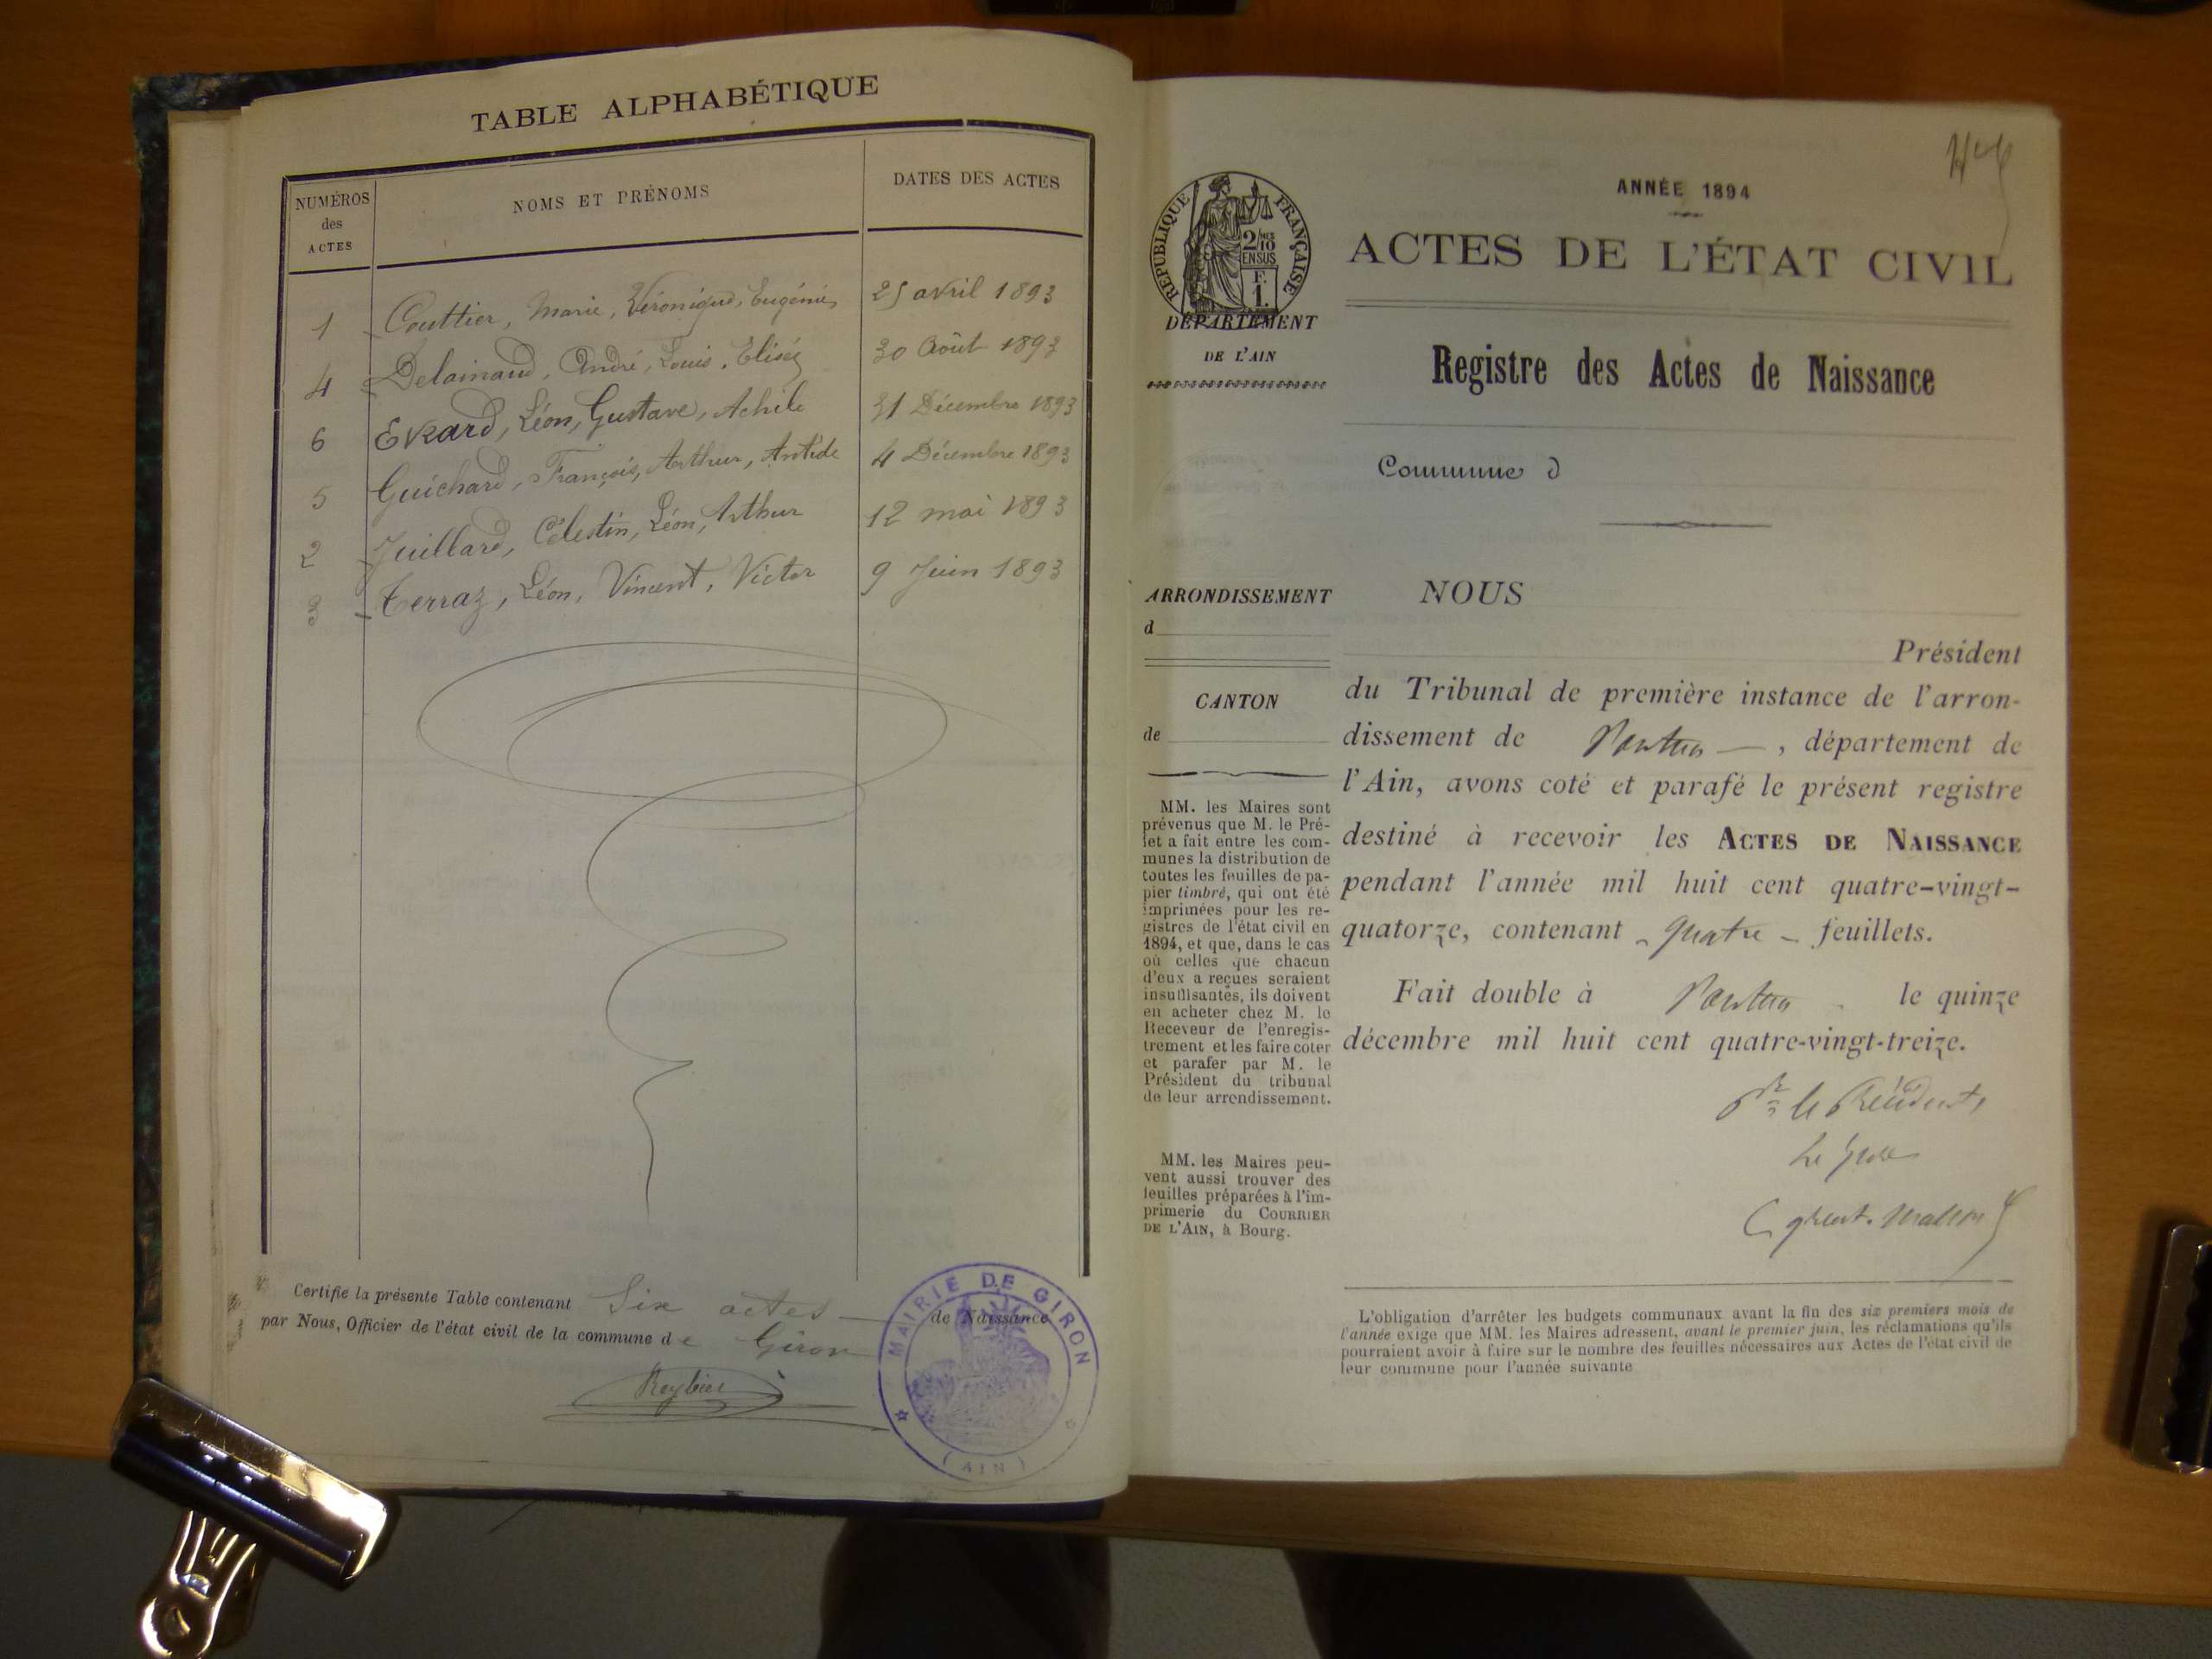 TABLE ALPHABÉTIQUE
NUMÉROS
des
ACTES
NOMS ET PRÉNOMS
DATES DES ACTES
1 Couttier, Marie, Véronique, Eugénie 25 avril 1893
4 Delainaud, André, Louis, Elisée 30 Août 1893
6 Evrard, Léon, Gustave, Achile 31 Décembre 1893
5 Guichard, François, Arthur, Antide 4 Décembre 1893
2 Juillard, Célestin, Léon, Arthur 12 mai 1893
3 Terraz, Léon, Vincent, Victor 9 Juin 1893
Certifie la présente Table contenant Six actes de Naissance
par Nous, Officier de l'état civil de la commune de Giron
MAIRIE DE GIRON
(AIN)
ANNÉE 1894
RÉPUBLIQUE FRANÇAISE
2/10
EN SUS
F.
1.
ACTES DE L'ÉTAT CIVIL
DÉPARTEMENT
DE L'AIN
Registre des Actes de Naissance
Commune d
ARRONDISSEMENT
d
CANTON
de
MM. les Maires sont
prévenus que M. le Pré-
fet a fait entre les com-
munes la distribution de
toutes les feuilles de pa-
pier timbré, qui ont été
imprimées pour les re-
gistres de l'état civil en
1894, et que, dans le cas
où celles que chacun
d'eux a reçues seraient
insuffisantes, ils doivent
en acheter chez M. le
Receveur de l'enregis-
trement et les faire coter
et parafer par M. le
Président du tribunal
de leur arrondissement.
MM. les Maires peu-
vent aussi trouver des
feuilles préparées à l'im-
primerie du COURRIER
DE L'AIN, à Bourg.
NOUS
Président
du Tribunal de première instance de l'arron-
dissement de Nantua, département de
l'Ain, avons coté et parafé le présent registre
destiné à recevoir les ACTES DE NAISSANCE
pendant l'année mil huit cent quatre-vingt-
quatorze, contenant - quatre - feuillets.
Fait double à Nantua le quinze
décembre mil huit cent quatre-vingt-treize.
Pr le Président,
Le juge
L'obligation d'arrêter les budgets communaux avant la fin des six premiers mois de
l'année exige que MM. les Maires adressent, avant le premier juin, les réclamations qu'ils
pourraient avoir à faire sur le nombre des feuilles nécessaires aux Actes de l'état civil de
leur commune pour l'année suivante